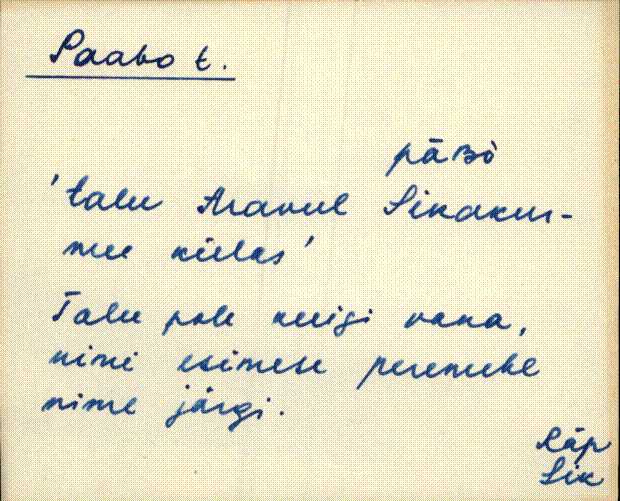 Paabo t.
pāʙò
'talu Aravul Sikakur-
mu külas'
Talu pole kuigi vana,
nimi esimese peremehe
nime järgi.
Räp
Sik